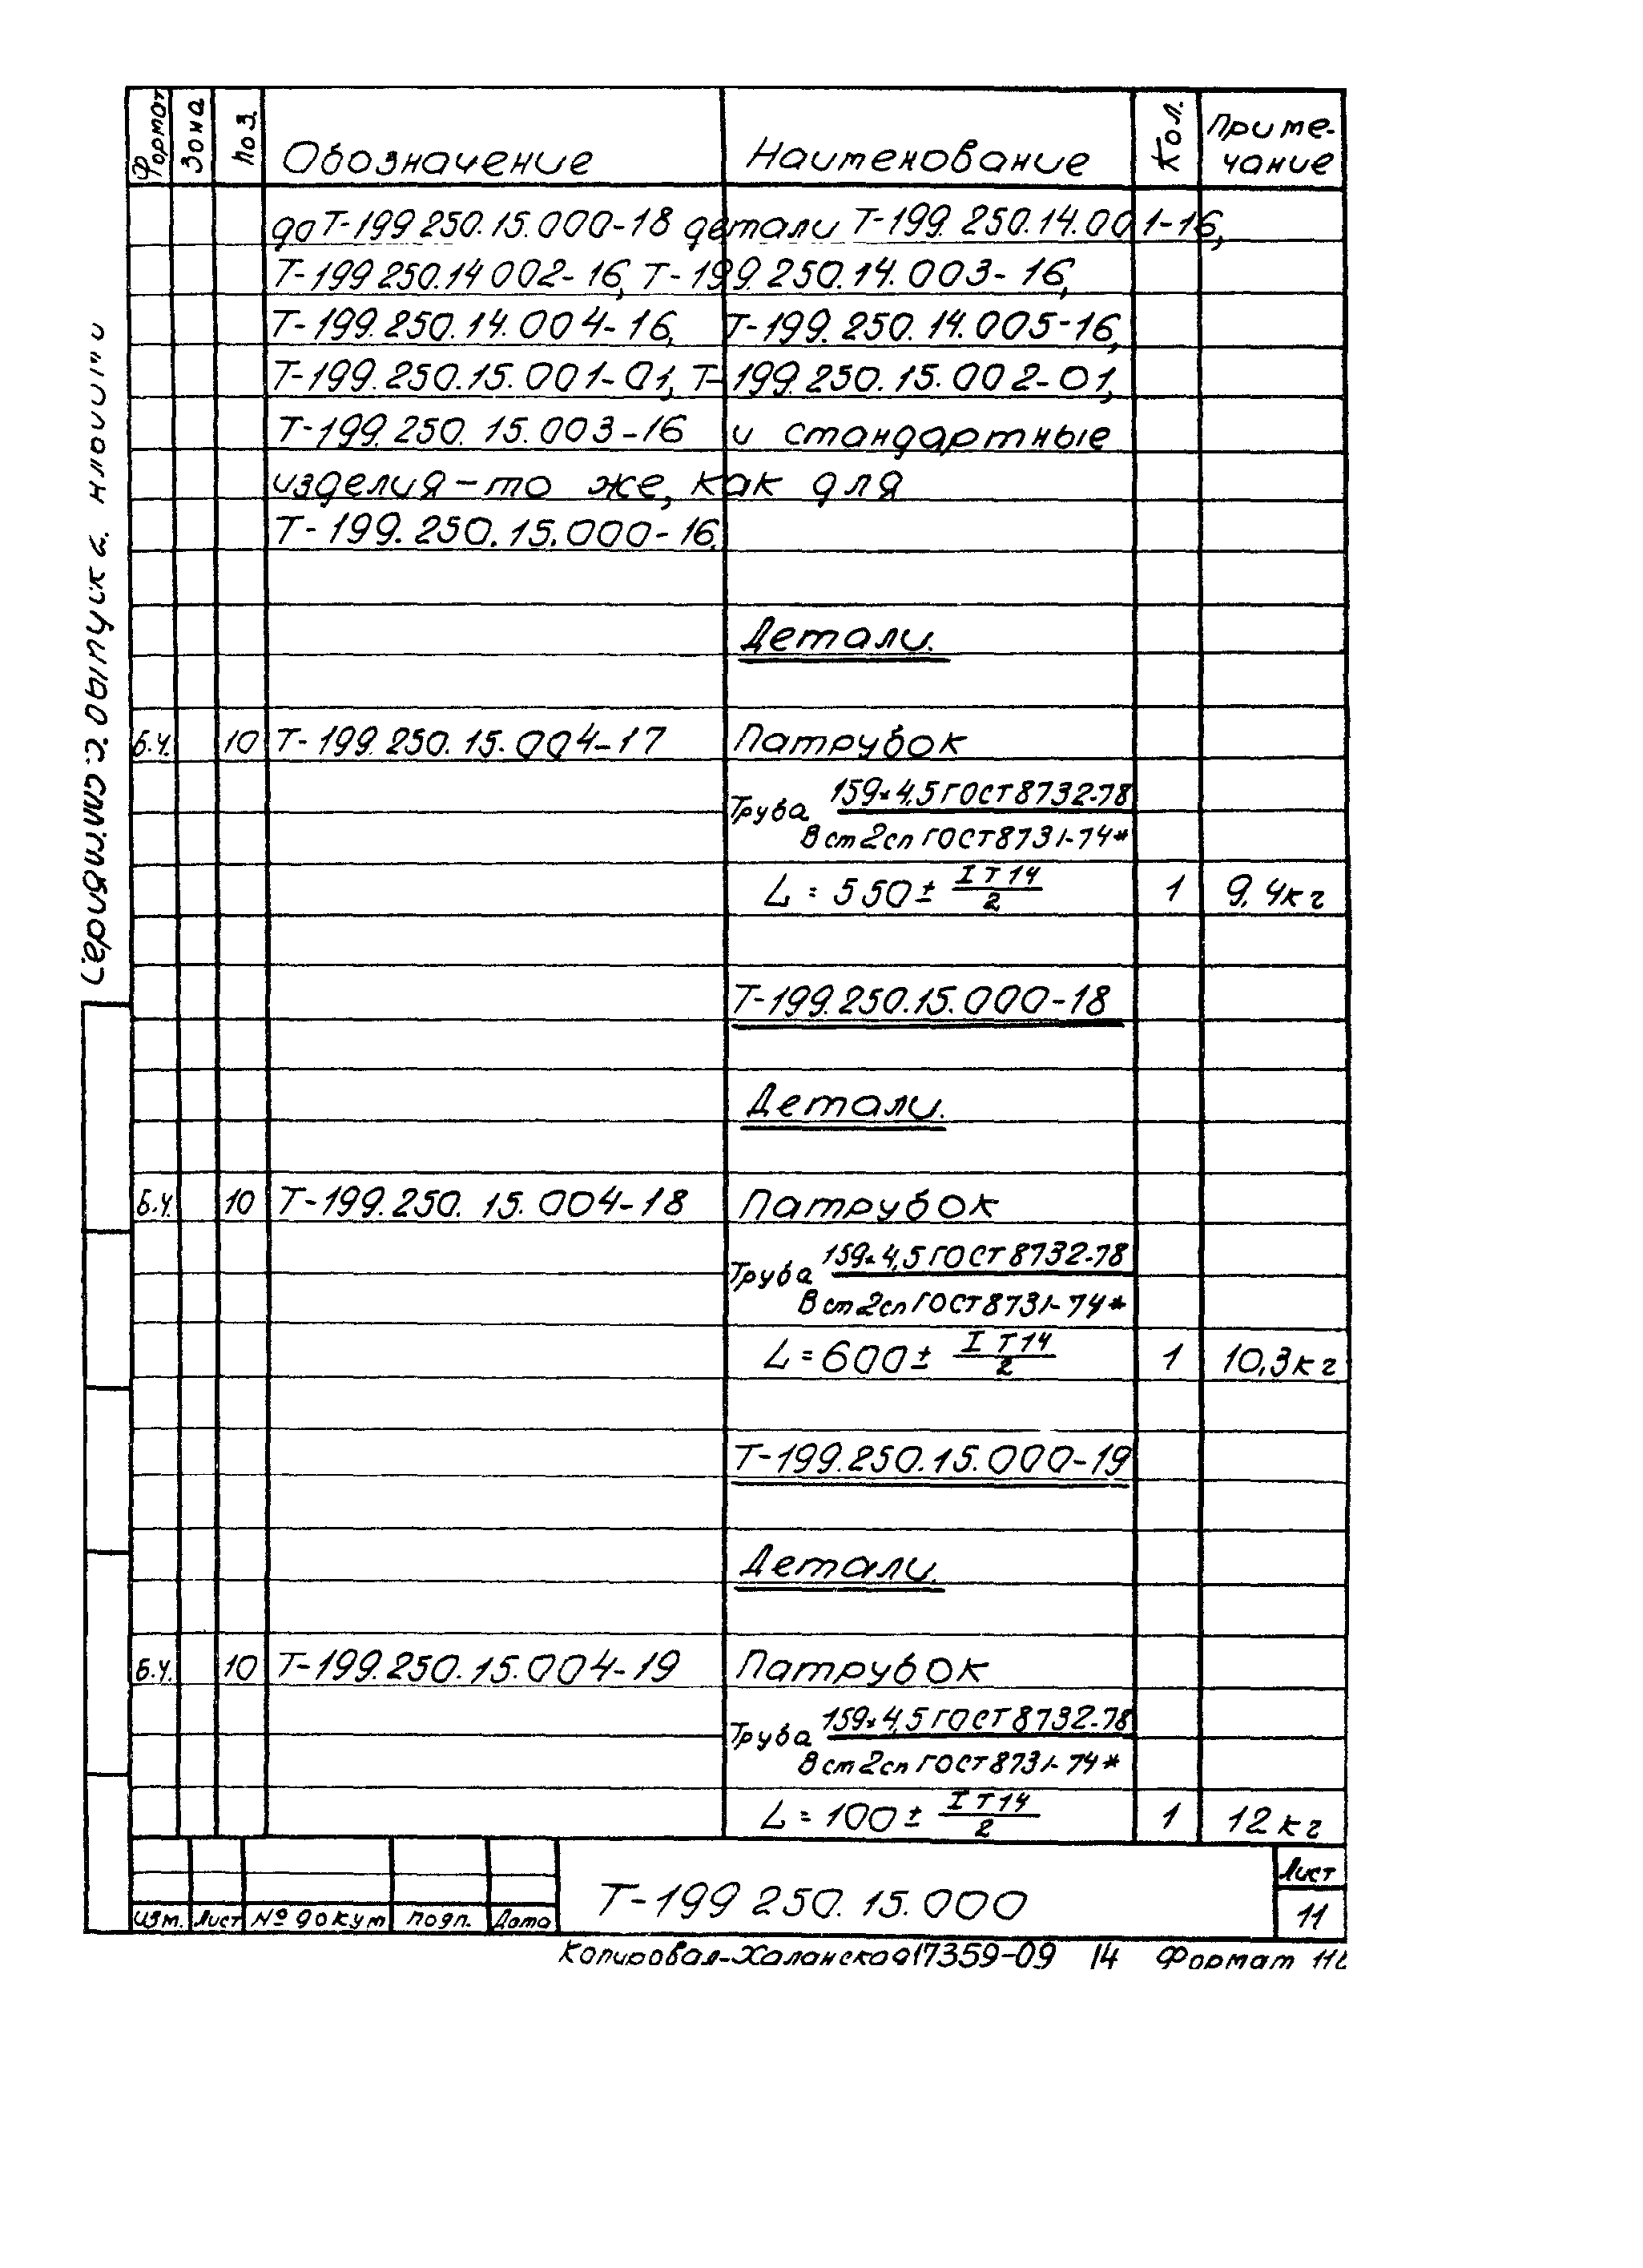 Формат Зона Поз. Обозначение Наименование Кол. Приме-
чание
до Т-199 250.15.000-18 детали Т-199. 250.14.001-16,
Т-199 250.14 002-16, Т-199. 250.14.003-16,
Т-199. 250.14.004-16, Т-199. 250.14.005-16,
Т-199. 250.15.001-01, Т-199. 250.15.002-01,
Т-199. 250. 15.003-16 и стандартные
изделия - то же, как для
Т-199. 250.15.000-16.
Детали.
Б.Ч. 10 Т-199. 250. 15.004-17 Патрубок
Труба 159×4,5 ГОСТ 8732-78
В ст 2сп ГОСТ 8731-74*
L = 550 ± IT14
2
1 9,4 кг
Т-199. 250.15.000-18
Детали.
Б.Ч. 10 Т-199. 250. 15.004-18 Патрубок
Труба 159×4,5 ГОСТ 8732-78
В ст 2сп ГОСТ 8731-74*
L = 600 ± IT14
2
1 10,3 кг
Т-199. 250.15.000-19
Детали.
Б.Ч. 10 Т-199. 250.15.004-19 Патрубок
Труба 159×4,5 ГОСТ 8732-78
В ст 2сп ГОСТ 8731-74*
L = 100 ± IT14
2
1 12 кг
Изм. Лист № докум подп. Дата
Т-199 250.15.000
Лист
11
Копировал-Халанская 17359-09 14 Формат